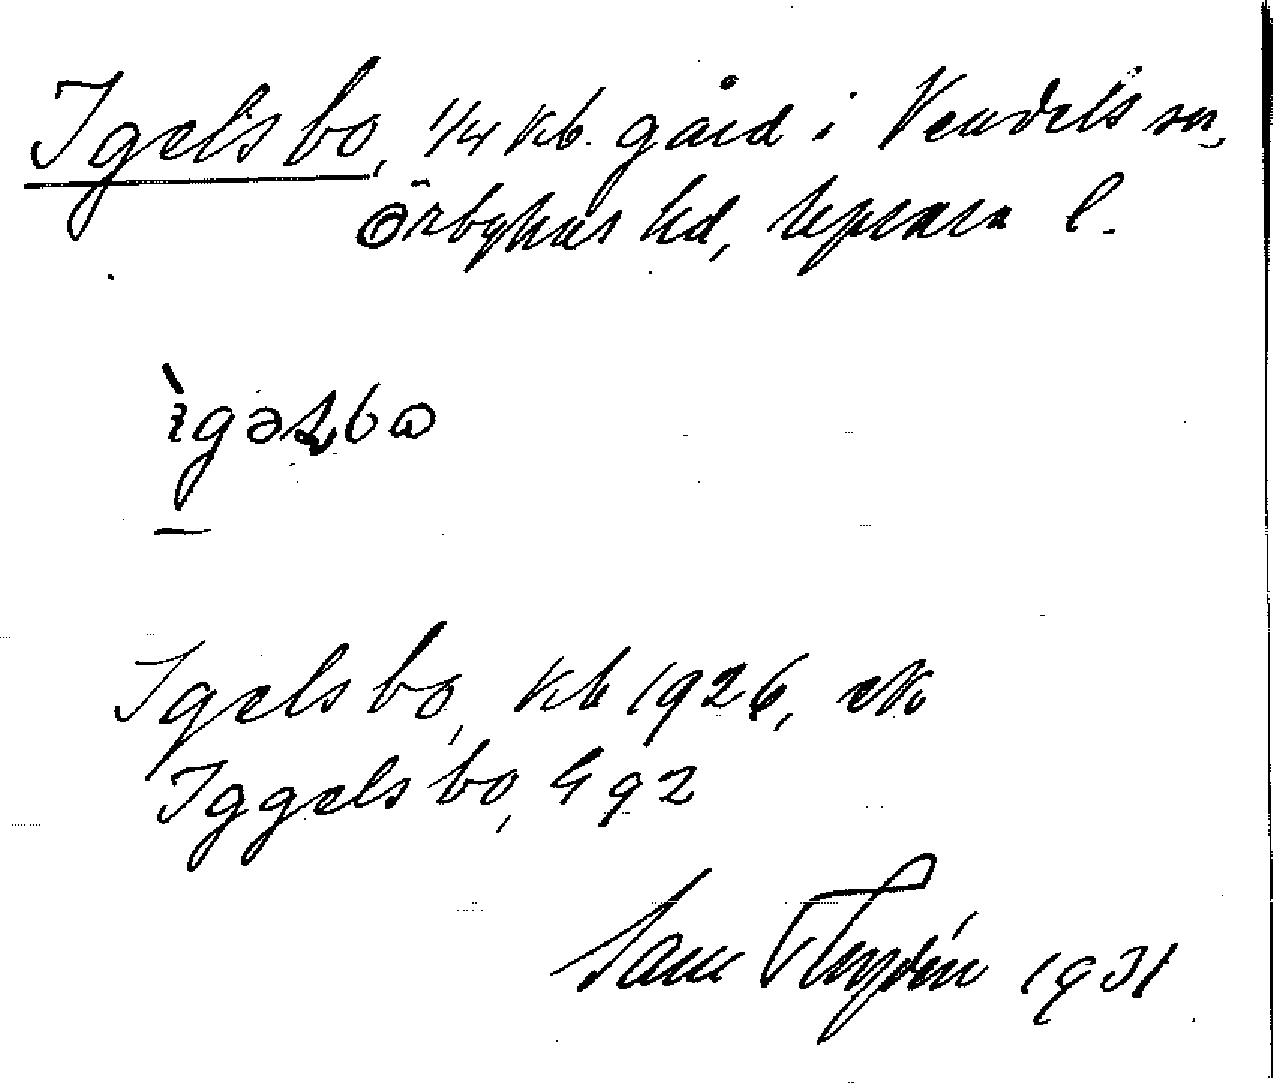 Igelsbo, 1/4 kb. gård i Vendels sn,
Örbyhus hd, Uppsala l.
ìgəɫsbo
Igelsbo, Kb 1926, ek
Iggelsbo, G 92
1931